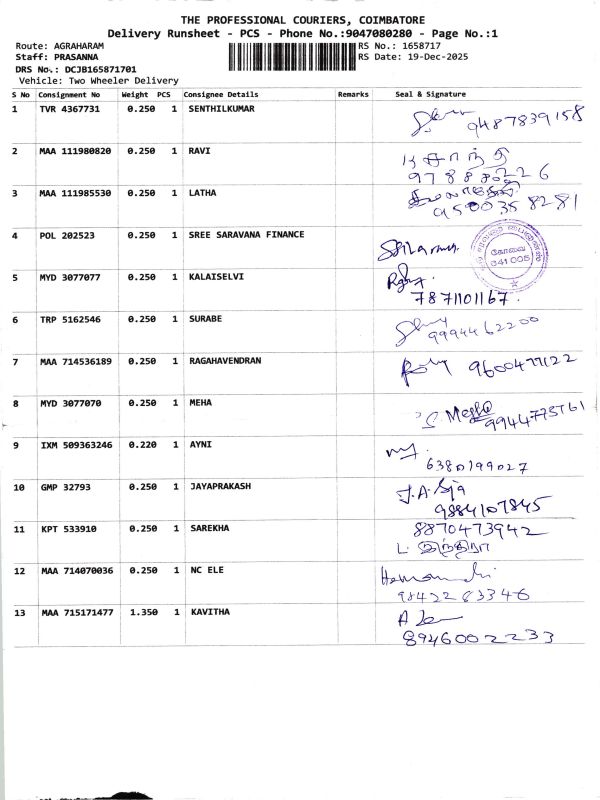 THE PROFESSIONAL COURIERS, COIMBATORE
Delivery Runsheet - PCS - Phone No.:9047080280 - Page No.:1
Route: AGRAHARAM RS No.: 1658717
Staff: PRASANNA RS Date: 19-Dec-2025
DRS No.: DCJB165871701
Vehicle: Two Wheeler Delivery
S No Consignment No Weight PCS Consignee Details Remarks Seal & Signature
1 TVR 4367731 0.250 1 SENTHILKUMAR
9487839158
2 MAA 111980820 0.250 1 RAVI
சாந்தி
9788880226
3 MAA 111985530 0.250 1 LATHA
9500358281
4 POL 202523 0.250 1 SREE SARAVANA FINANCE
கோவை
641 005
5 MYD 3077077 0.250 1 KALAISELVI
7871101167.
6 TRP 5162546 0.250 1 SURABE
9994462200
7 MAA 714536189 0.250 1 RAGAHAVENDRAN 9600477122
8 MYD 3077070 0.250 1 MEHA
Megha
9944773761
9 IXM 509363246 0.220 1 AYNI
6380199027
10 GMP 32793 0.250 1 JAYAPRAKASH
9884107845
11 KPT 533910 0.250 1 SAREKHA 8870473942
L. இந்திரா
12 MAA 714070036 0.250 1 NC ELE
9842283346
13 MAA 715171477 1.350 1 KAVITHA
8946002233